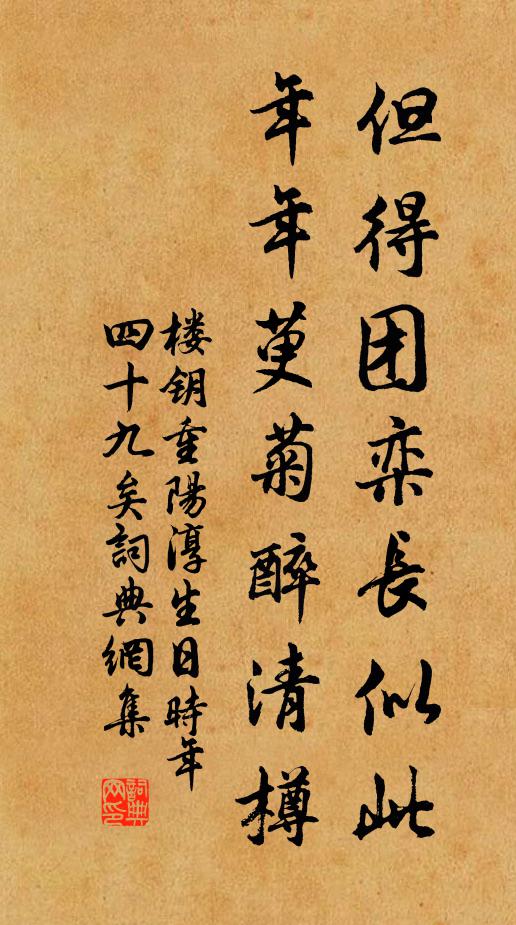 但得团栾長似此
年年萸菊醉清樽
楼钥重陽淳生日時年
四十九矣詞典網集
詞典
网印